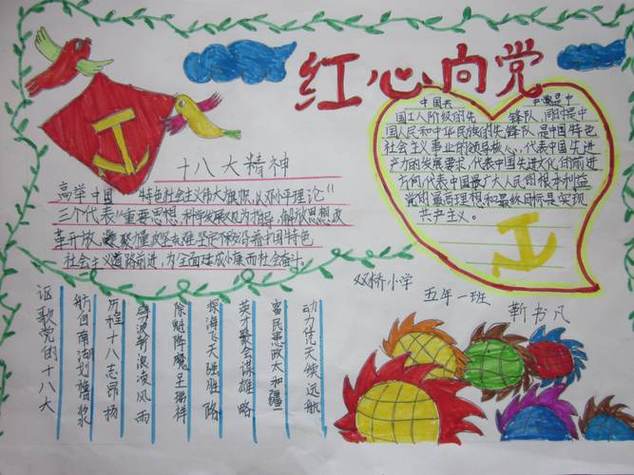 红心向党
十八大精神
高举中国特色社会主义伟大旗帜,以邓小平理论“
三个代表”重要思想,科学发展观为指导,解放思想改
革开放,凝聚
社会主义道路前进,为全面建成小康而社会奋斗
中国共 党是中
国工人阶级的先 锋队,同时是中
国人民和中华民族的先锋队,是中国特色
社会主义事业的领导核心,代表中国先进
生产力的发展要求,代表中国先进文化的前进
方向,代表中国最广大人民的根本利益
党的最高理想和最终目标是实现
共产主义。
双桥小学
五年一班
靳书凡
讴歌党的十八大
船自南湖划橹浆
历程十八志昂扬
劈波斩浪凌风雨
除魑降魔呈吉祥
探海飞天强胜路
英才聚会谋雄略
富民惠政太和疆
动力伟天候远航